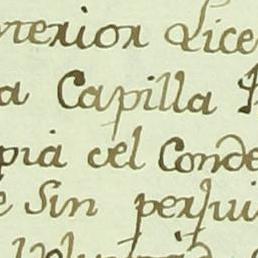 nterior Lice
a Capilla
pia del Conde
e Sin perjui